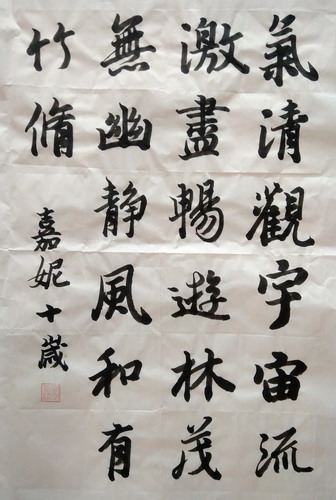 氣清觀宇宙流
激盡暢遊林茂
無幽静風和有
竹脩
嘉妮十歲